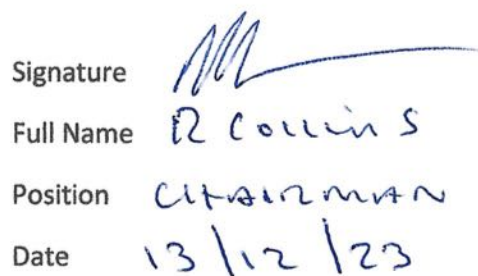 Signature
Full Name R Collins
Position CHAIRMAN
Date 13/12/23